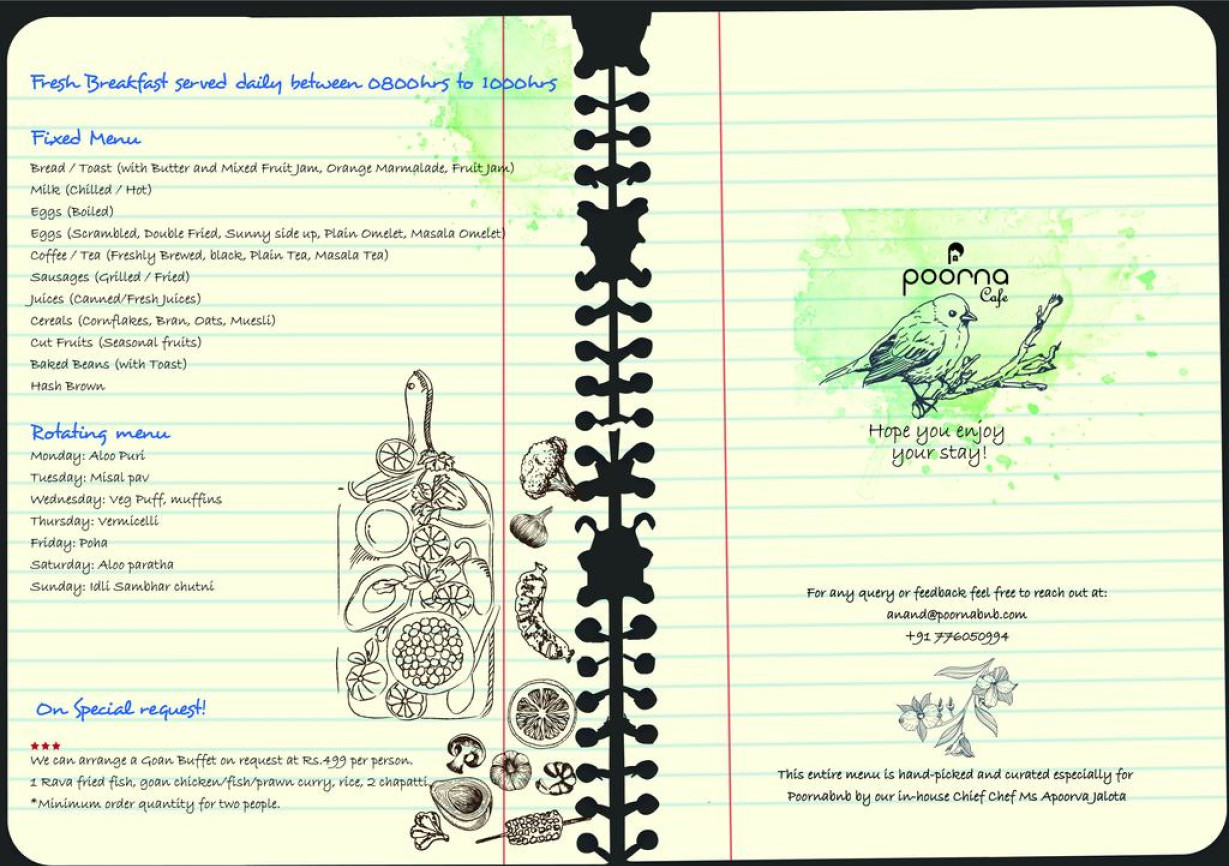 Fresh Breakfast served daily between 0800hrs to 1000hrs
Fixed Menu
Bread / Toast (with Butter and Mixed Fruit Jam, Orange Marmalade, Fruit Jam)
Milk (Chilled / Hot)
Eggs (Boiled)
Eggs (Scrambled, Double Fried, Sunny side up, Plain Omelet, Masala Omelet)
Coffee / Tea (Freshly Brewed, black, Plain Tea, Masala Tea)
Sausages (Grilled / Fried)
Juices (Canned/Fresh Juices)
Cereals (Cornflakes, Bran, Oats, Muesli)
Cut Fruits (Seasonal fruits)
Baked Beans (with Toast)
Hash Brown
Rotating menu
Monday: Aloo Puri
Tuesday: Misal pav
Wednesday: Veg Puff, muffins
Thursday: Vermicelli
Friday: Poha
Saturday: Aloo paratha
Sunday: Idli Sambhar chutni
On Special request!
We can arrange a Goan Buffet on request at Rs.499 per person.
1 Rava fried fish, goan chicken/fish/prawn curry, rice, 2 chapatti.
*Minimum order quantity for two people.
poorna
Cafe
Hope you enjoy
your stay!
For any query or feedback feel free to reach out at:
anand@poornabnb.com
+91 776050994
This entire menu is hand-picked and curated especially for
Poornabnb by our in-house Chief Chef Ms Apoorva Jalota